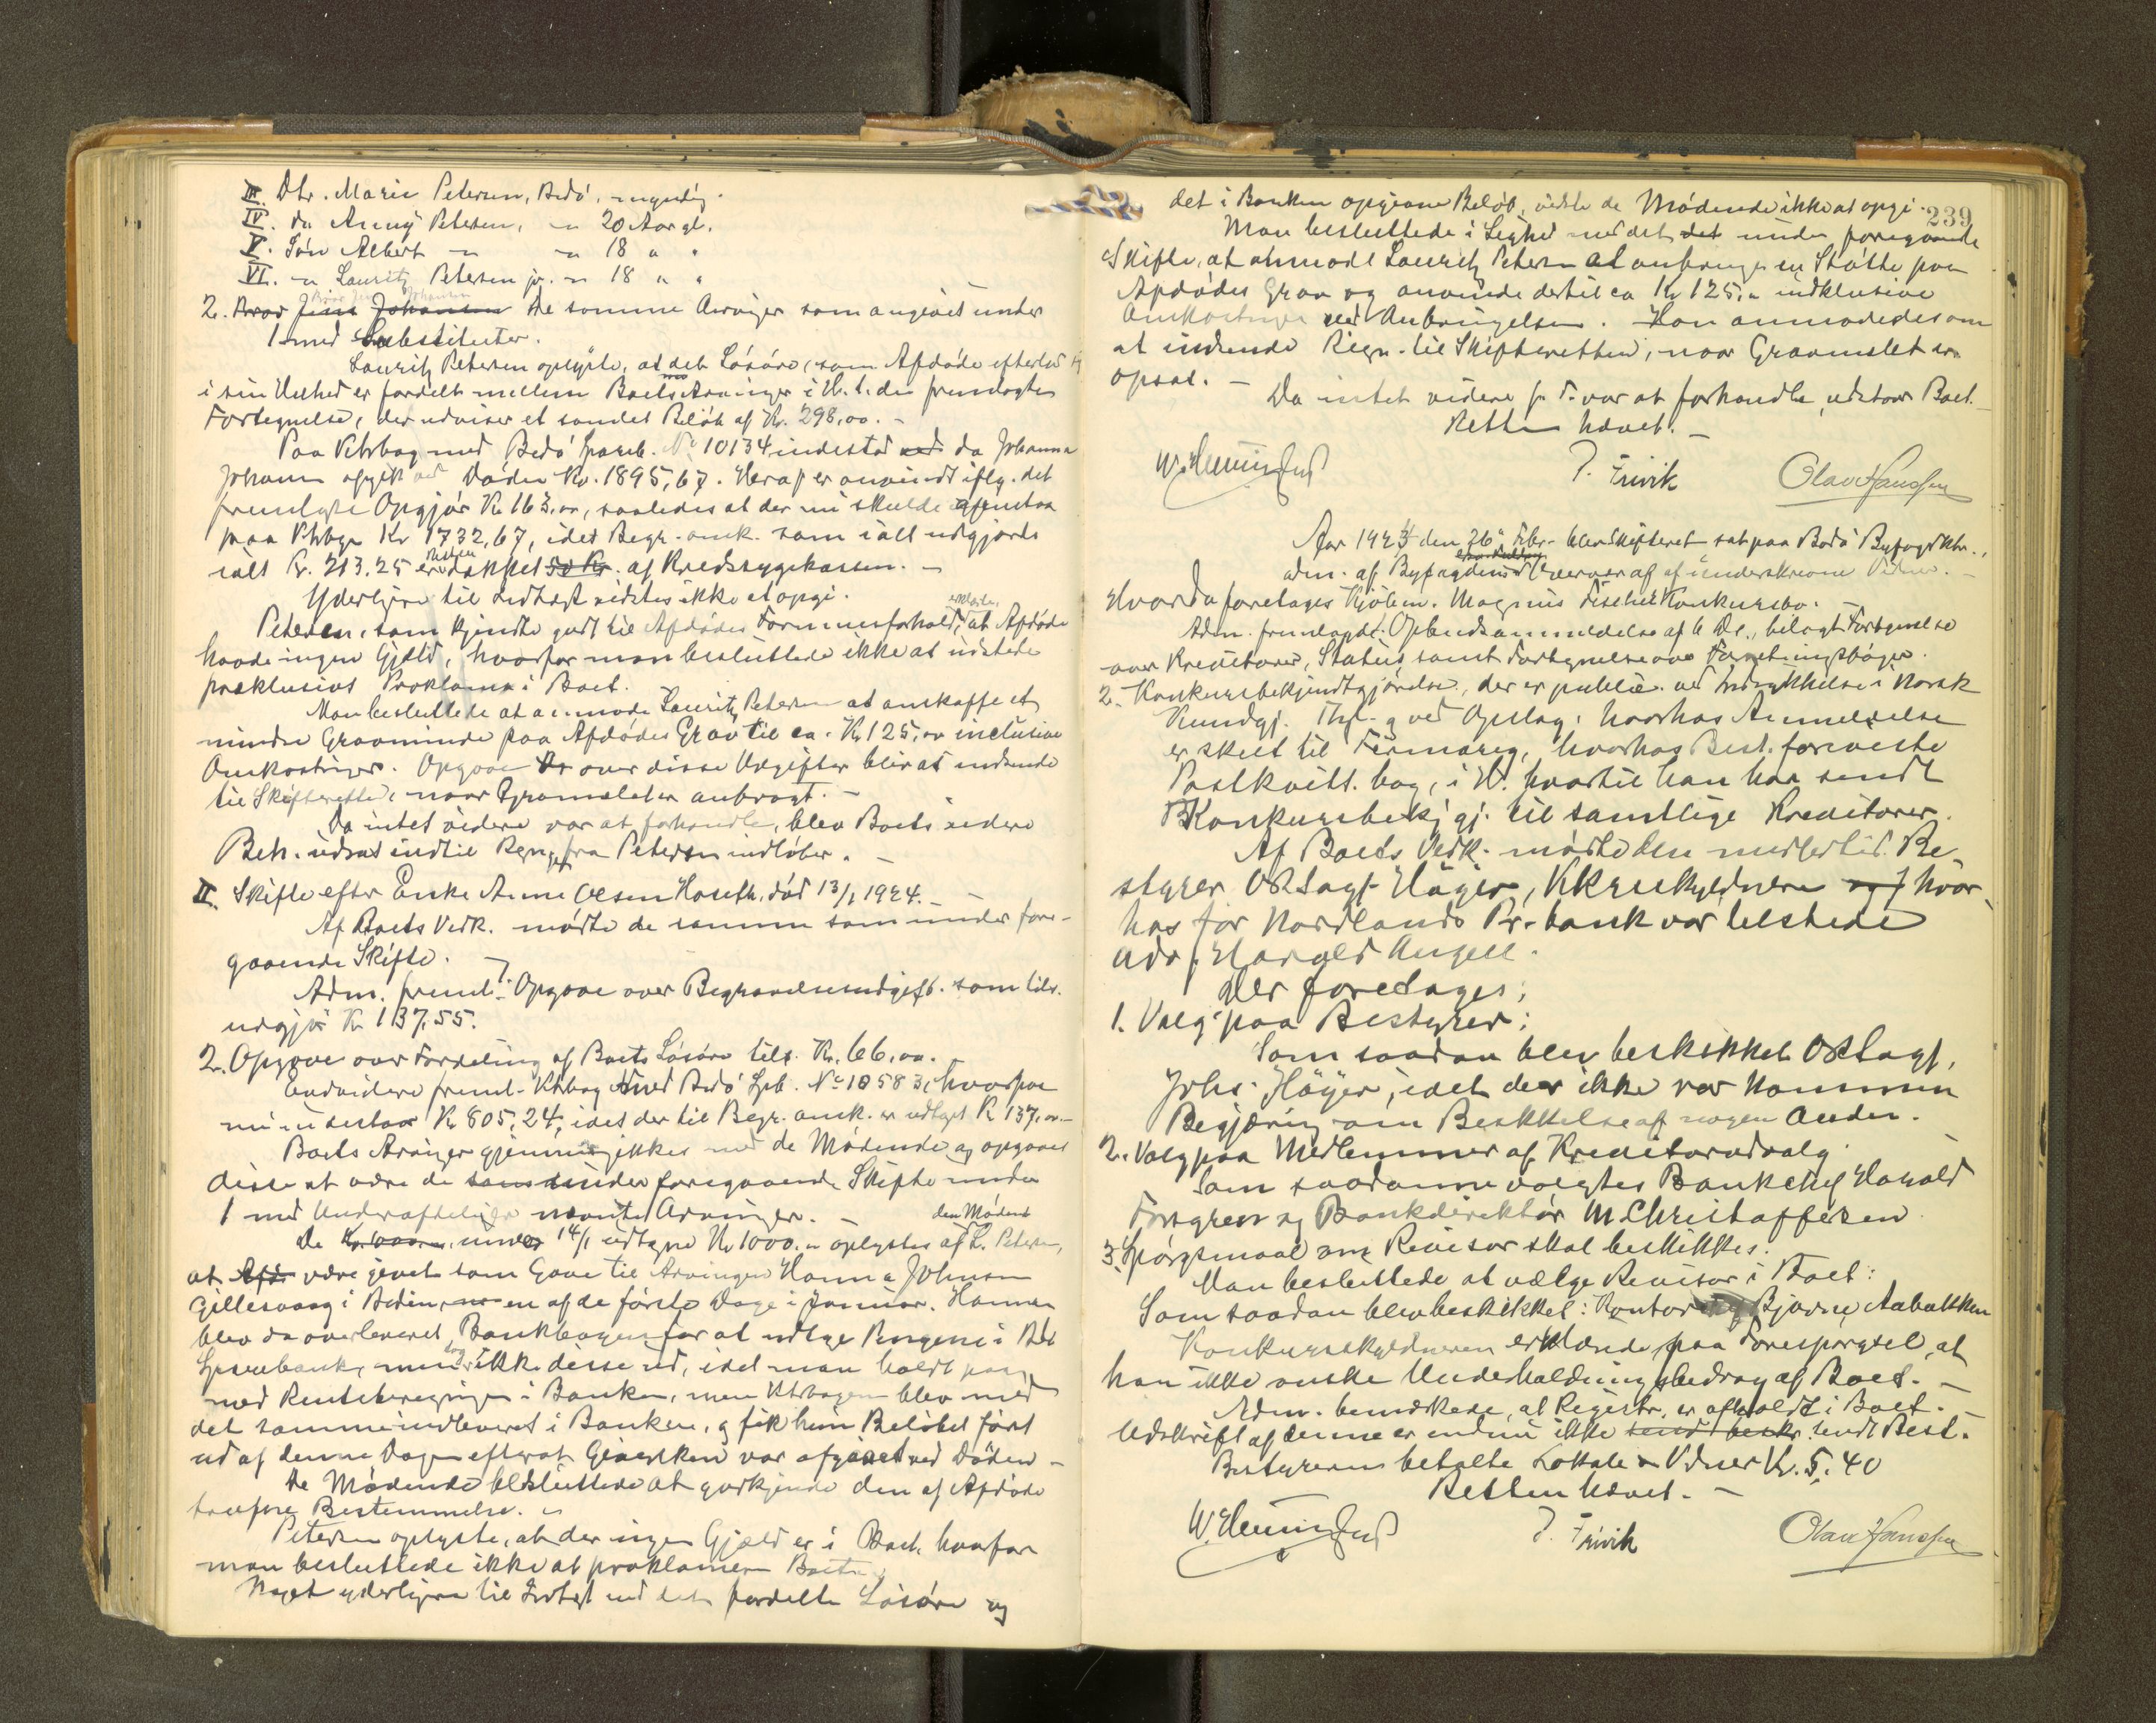 III. Dtr. Marie Petersen, Bodö, myndig.
IV. do Anny Petersen, " 20 Aar gl.
V. Sön Albert " " 18 " "
VI. " Lauritz Petersen jr. " 18 " "
2. Bror Jens Johansen De samme Arvinger som angivet under
1 med Substituter.
Lauritz Petersen oplyste, at det Lösöre, som Afdöde efterlod
i sin Helhed er fordelt mellem Boets Arvinger i H. t. den fremlagte
Fortegnelse, der udviser et samlet Belöb af Kr. 298,00. -
Paa Ktrbog med Bodö Spareb. No 10134 indestod ved da Johanna
Johans afgik ved Döden Kr. 1895,67. Heraf er anvendt iflg. det
fremlagte Opgjör Kr 163,00, saaledes at der nu skulde gjenstaa
paa Ktrbogen Kr 1732,67, idet Begr. omk. som ialt udgjorde
ialt Kr. 213.25 er Resten dækket 50 Kr. af Kredssygekassen. -
Yderligere til Indtægt vidstes ikke at opgi.
Petersen, som kjendte godt til Afdödes Formuesforhold, erklærte, at Afdöde
havde ingen Gjæld, hvorfor man besluttede ikke at udstede
præklusivt Proklama i Boet.
Man besluttede at anmode Lauritz Petersen at anskaffe et
mindre Gravminde paa Afdödes Grav til ca. Kr 125,00 inclusive
Omkostninger. Opgave over disse Udgifter blir at indsende
til Skifteretten, naar Gravmælet er anbragt. -
Da intet videre var at forhandle, blev Boets videre
Beh. udsat indtil Regning fra Petersen indløber. -
II. Skifte efter Enke Anne Olsen Hoseth, död 13/1 1924. -
Af Boets Vedk. mödte de samme som under fore-
gaaende Skifte. -
Adm. freml. 1. Opgave over Begravelsesudgift. som tils.
udgjör Kr 137,55.
2. Opgave over Fordeling af Boets Lösöre tils. Kr. 66,00.
Endvidere freml. Ktrbog med Bodö Spb. No 10583, hvorpaa
nu indestaar Kr 805,24, idet der til Begr. omk. er udtaget Kr 137,00. -
Boets Arvinger gjennemgikkes med de Mödende og opgaves
disse at være de samme under foregaaende Skifte under
1 med Underafdelinger nævnte Arvinger. -
De Kr 1000,00 under 14/1 udtagne Kr 1000,00 oplystes af den Mödende L. Petersen,
at Afd. være givet som Gave til Arvingen Hanna Johnsen
Gillesvaag i Bodin, en af de förste Dage i Januar. Hannen
blev da overleveret Bankbogen for at udtage Pengene i Bodö
Sparebank, men tog ikke disse ud, idet man holdt paa
med Renteberegningen i Banken, men Ktrbogen blev med
det samme indleveret i Banken, og fik hun Belöbet fört
ud af denne Dagen efterat Giversken var afgaaet ved Döden -
De Mödende besluttede at godkjende den af Afdöde
trufne Bestemmelse. -
Petersen oplyste, at der ingen Gjæld er i Boet, hvorfor
man besluttede ikke at proklamere Boet.
Noget yderligere til Indtægt end det fordelte Lösöre og
239
det i Banken opgivne Belöb, vidste de Mödende ikke at opgi.
Man besluttede i Lighed med det det under foregaaende
Skifte, at anmode Lauritz Petersen at anbringe en Stötte paa
Afdödes Grav og anvende dertil ca Kr 125,00 indklusive
Omkostninger ved Anbringelsen. Han anmodedes om
at indsende Regn. til Skifteretten, naar Gravmælet er
opsat. -
Da intet videre f. T. var at forhandle, udstaar Boet.
Retten hævet. -
J. Frivik Olav Hanssen
Aar 1924 den 26. Febr. blev Skifteret sat paa Bodö Byfogdktr.,
adm. af Byfogdens Overvær af underskrevne Vidner. -
Hvorda foretages Kjöbm. Magnus Fischer Konkursbo. -
Adm. fremlagde: 1. Opbudsanmeldelse af 6 Ds., belagt Fortegnelse
over Kreditorer, Status, samt Fortegnelse over Forretningsböger.
2. Konkursbekjendtgjörelse, der er public. ved Indrykkelse i Norsk
Kundgj. Tid. og ved Opslag, hvorhos Anmeldelse
er skeet til Firmareg., hvorhos Best. foreviste
Postkvitt. bog, i H. hvortil han har sendt
Konkursbekj gj. til samtlige Kreditorer.
Af Boets Vedk. mödte den midlertid. Be
styrer ORSagf. Höyer, Kkrsskyldneren og hvor
hos for Nordlands Pr.-bank var tilstede
Adv. Harald Angell.
Der foretages;
1. Valg paa Bestyrer:
Som saadan blev beskikket ORSagf.
Johs. Höyer, idet der ikke var kommen
Begjæring om Beskikkelse af nogen Anden.
2. Valg paa Medlemmer af Kreditorudvalg.
Som saadanne valgtes Bankchef Harald
Forsgren og Bankdirektör M. Christoffersen
3. Spörgsmaal om Revisor skal beskikkes.
Man besluttede at vælge Revisor i Boet:
Som saadan blev beskikket: Kontorist Bjarne Aabakken
Konkursskyldneren erklærede, paa Forespörgsel, at
han ikke ønske Underholdningsbidrag af Boet. -
Adm. bemærkede, at Registr. er afholdt i Boet. -
Udskrift af denne er endnu ikke sendt Best.
Bestyreren betalte Lokale & Vidner Kr. 5,40
Retten hævet. -
J. Frivik Olav Hanssen